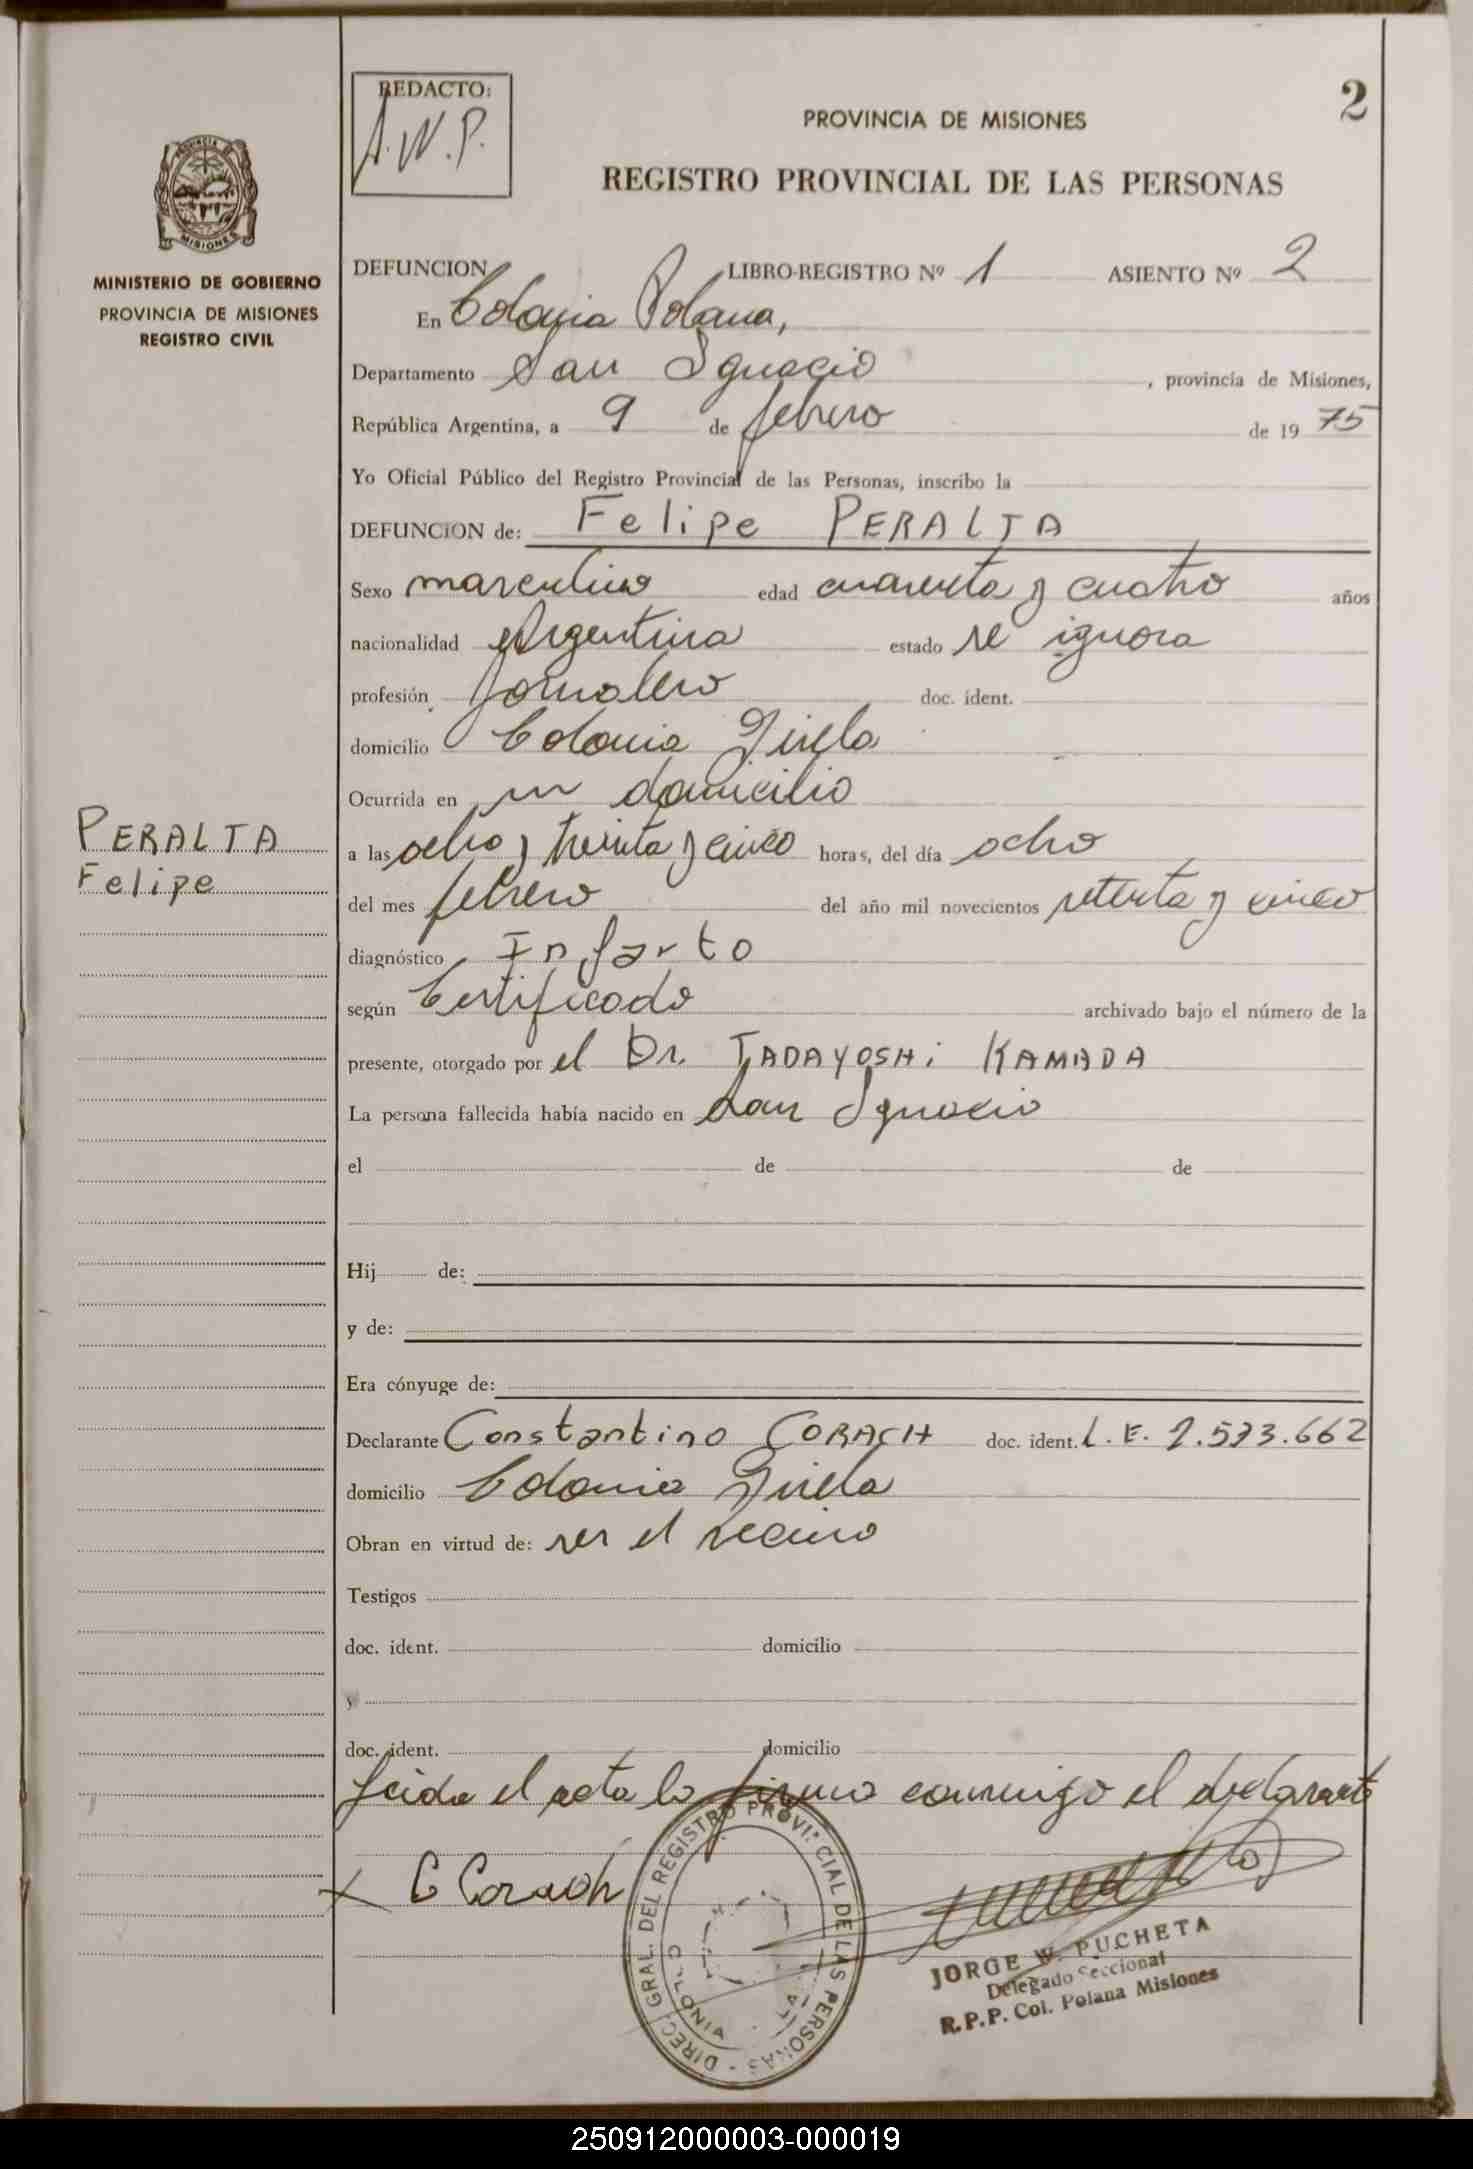 2
REDACTO:
PROVINCIA DE MISIONES
REGISTRO PROVINCIAL DE LAS PERSONAS
MISIONES
MINISTERIO DE GOBIERNO
PROVINCIA DE MISIONES
REGISTRO CIVIL
DEFUNCION LIBRO-REGISTRO Nº 1 ASIENTO Nº 2
En Colonia Polana,
Departamento San Ignacio, provincia de Misiones,
República Argentina, a 9 de febrero de 1975
Yo Oficial Público del Registro Provincial de las Personas, inscribo la
DEFUNCION de: Felipe PERALTA
Sexo masculino edad cuarenta y cuatro años
nacionalidad Argentina estado se ignora
profesión Jornalero doc. ident.
domicilio Colonia Gisela
Ocurrida en su domicilio
PERALTA
Felipe
a las ocho y treinta y cinco horas, del día ocho
del mes febrero del año mil novecientos setenta y cinco
diagnóstico Infarto
según Certificado archivado bajo el número de la
presente, otorgado por el Dr. TADAYOSHi KAMADA
La persona fallecida había nacido en San Ignacio
el de de
Hij de:
y de:
Era cónyuge de:
Declarante Constantino CORACH doc. ident. L. E.
domicilio Colonia Gisela
Obran en virtud de: ser el vecino
Testigos
doc. ident. domicilio
y
doc. ident. domicilio
Leida el acta la firma conmigo el declarante
C Corach
DIREC. GRAL. DEL REGISTRO PROVINCIAL DE LAS PERSONAS
COLONIA
JORGE W. PUCHETA
Delegado Seccional
R.P.P. Col. Polana Misiones
250912000003-000019